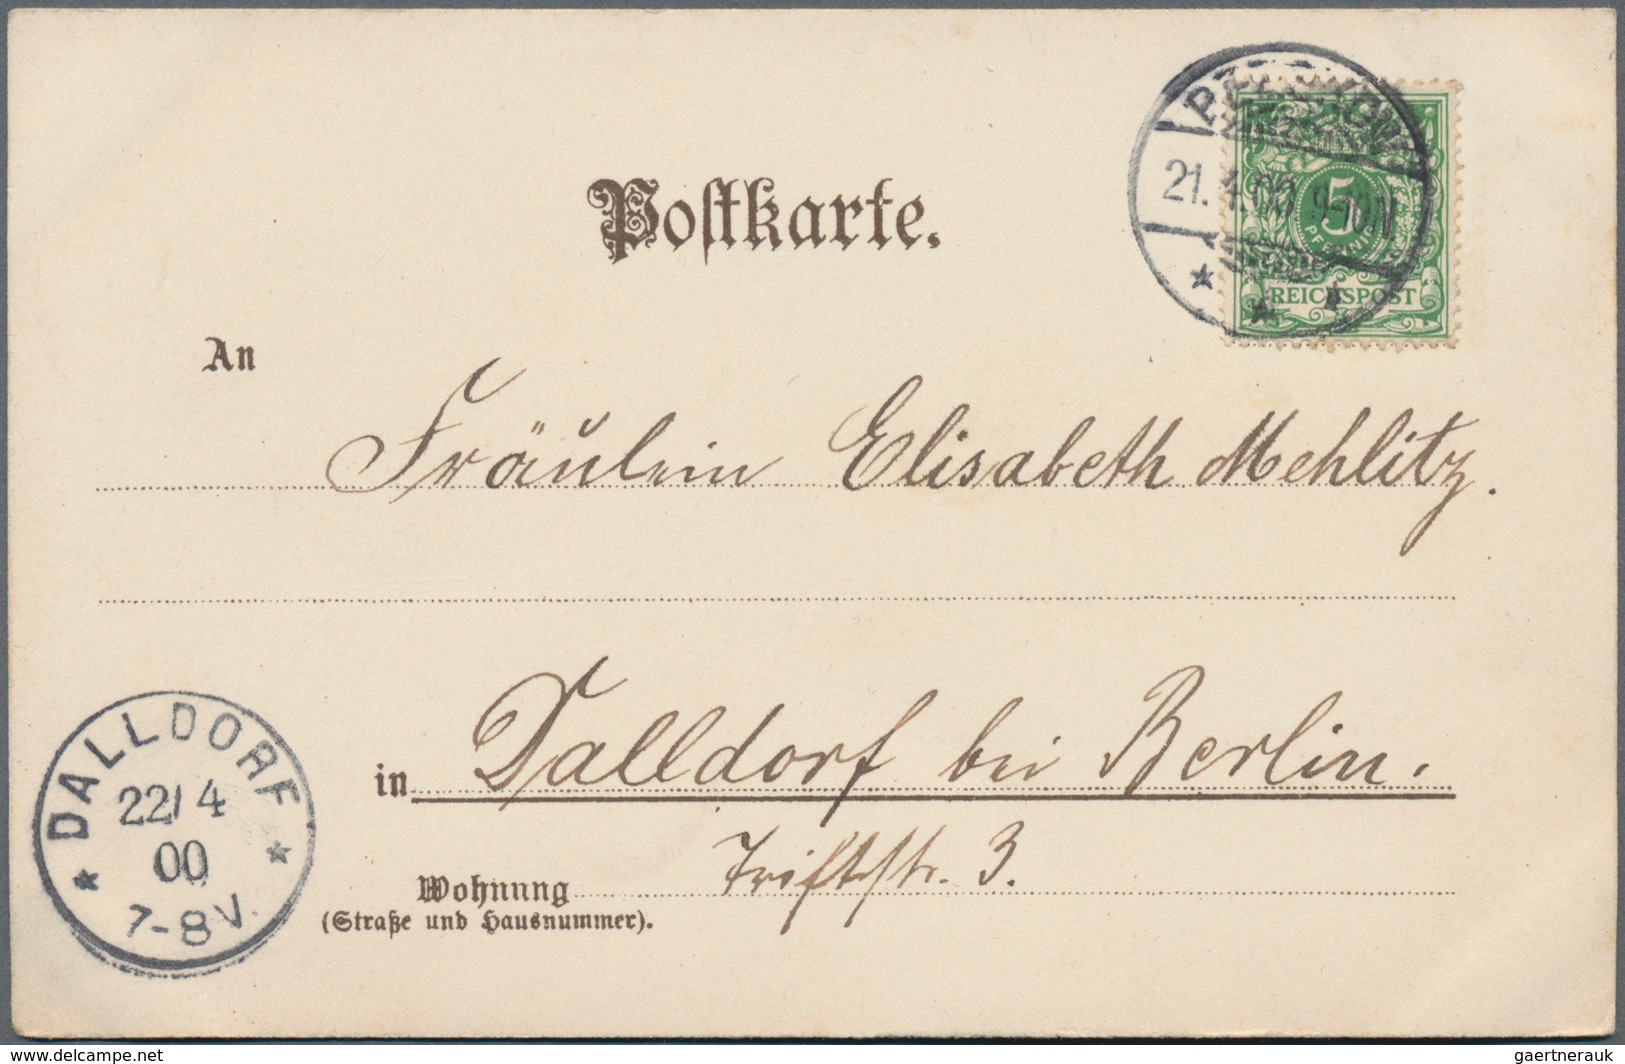 Postkarte.
21.4.00 9-10N
5
PFENNIG
REICHSPOST
An
Fräulein Elisabeth Mehlitz.
in Dalldorf bei Berlin.
Triftstr. 3.
Wohnung
(Straße und Hausnummer).
DALLDORF
22/4
00
7-8V.
www.delcampe.net
gaertnerauk